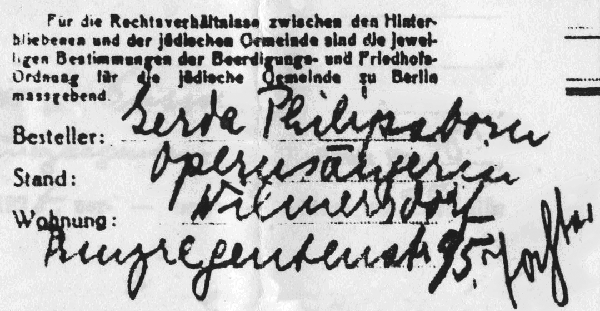 Für die Rechtsverhältnisse zwischen den Hinter-
bliebenen und der jüdischen Gemeinde sind die jewei-
ligen Bestimmungen der Beerdigungs- und Friedhofs-
Ordnung für die jüdische Gemeinde zu Berlin
massgebend.
Besteller: Gerda Philipsborn
Stand: Opernsängerin
Wohnung: Wilmersdorf
Prinzregentenstr 95. Tochter